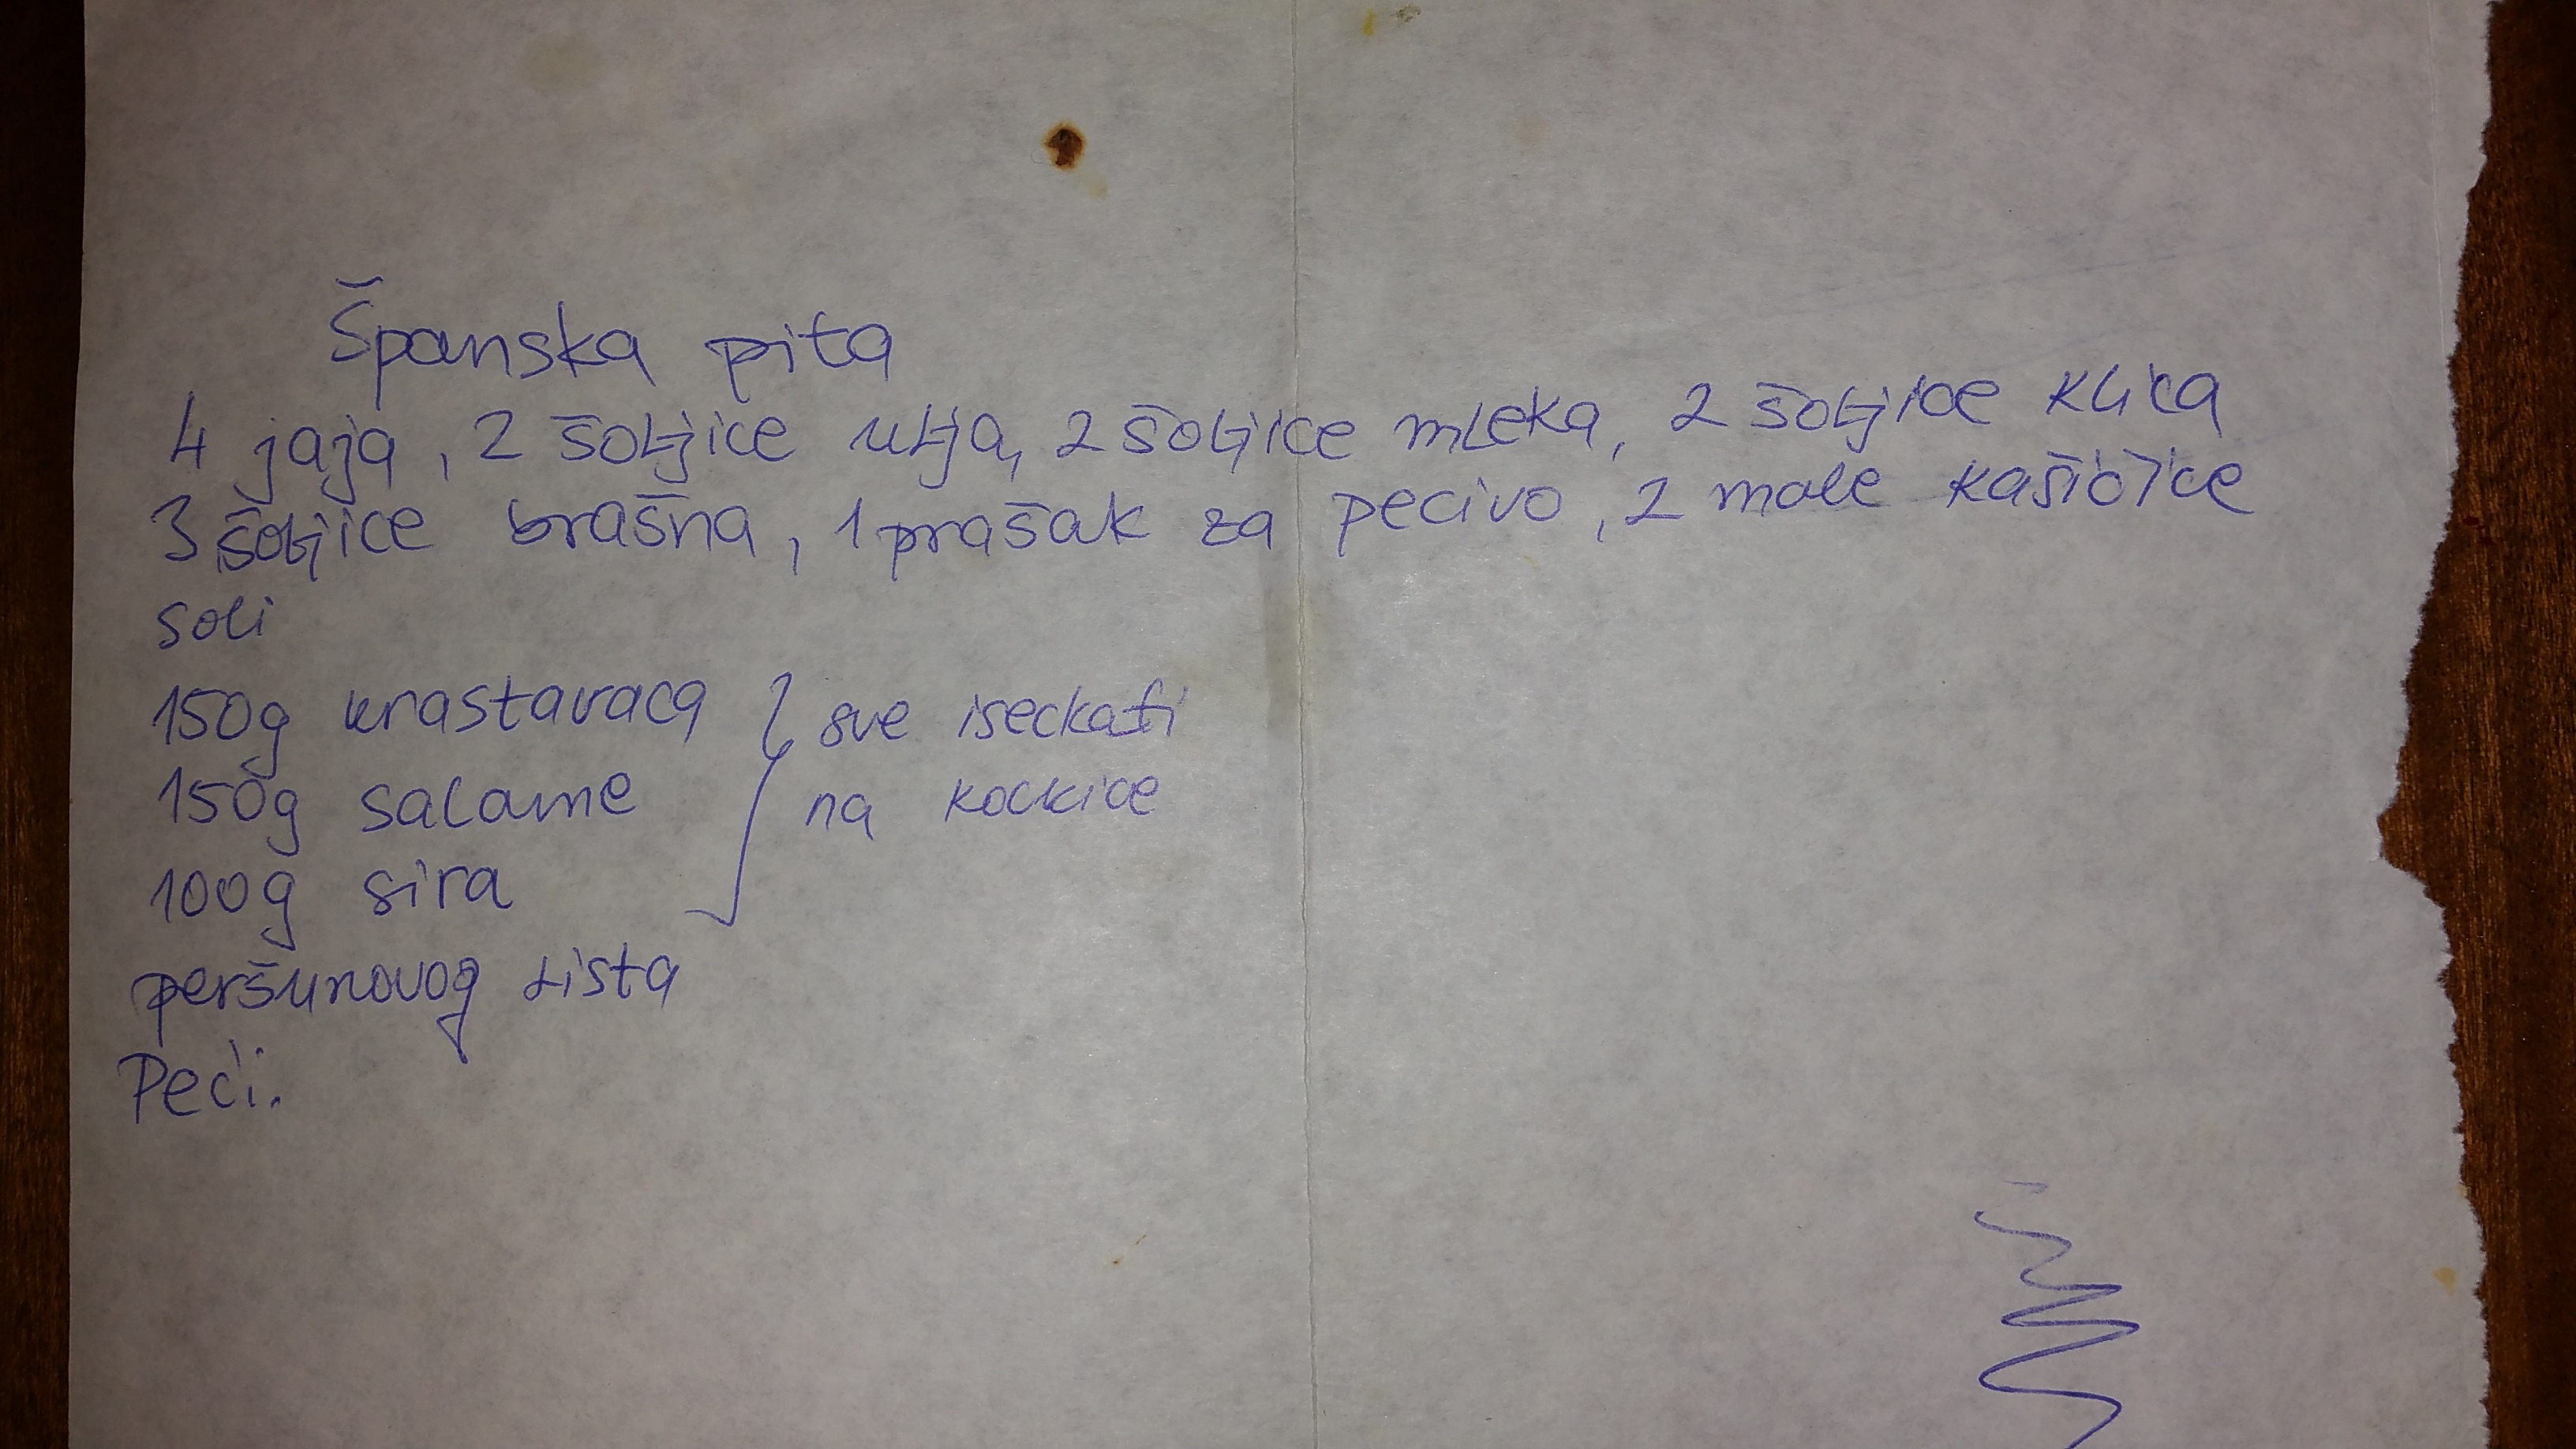 Španska pita
4 jaja, 2 šoljice ulja, 2 šoljice mleka, 2 šoljice k. kira
3 šoljice brašna, 1 prašak za pecivo, 2 male kašičice
soli
150g krastavaca } sve iseckati
150g salame na kockice
100g sira
peršunovog lista
Peći.